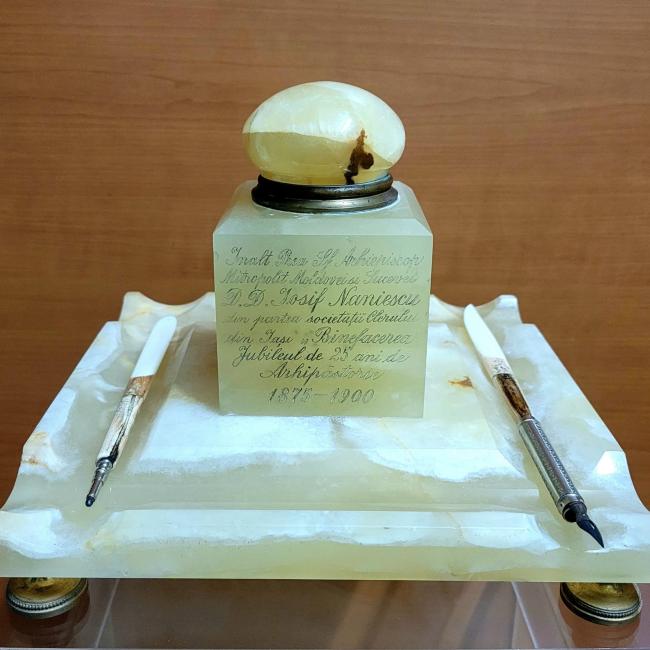 Inalt Prea Sf. Arhiepiscop
Mitropolit Moldovei si Sucevei
D. D. Iosif Naniescu
din partea societatii Clerului
din Iasi și Binefacerea
Jubileul de 25 ani de
Arhipăstorie
1875–1900